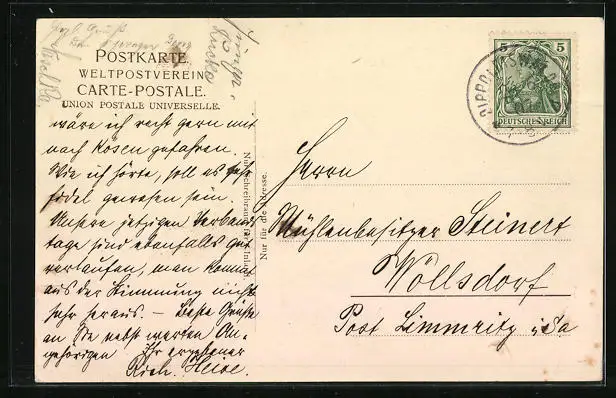 POSTKARTE.
WELTPOSTVEREIN
CARTE-POSTALE.
UNION POSTALE UNIVERSELLE.
wäre ich recht gern mit
nach Kösen gefahren.
Wie ich hörte, soll es sehr
fidel gewesen sein.
Unsere jetzigen Verbands
tage sind ebenfalls gut
verlaufen, man kommt
aus der Stimmung nicht
mehr heraus. — Beste Grüße
an Sie nebst werten An-
gehörigen Ihr ergebener
Rich. Heise.
Nur für die Adresse.
5 5
DEUTSCHES REICH
Herrn
Mühlenbesitzer Steinert
Wöllsdorf
Post Limmritz i/Sa